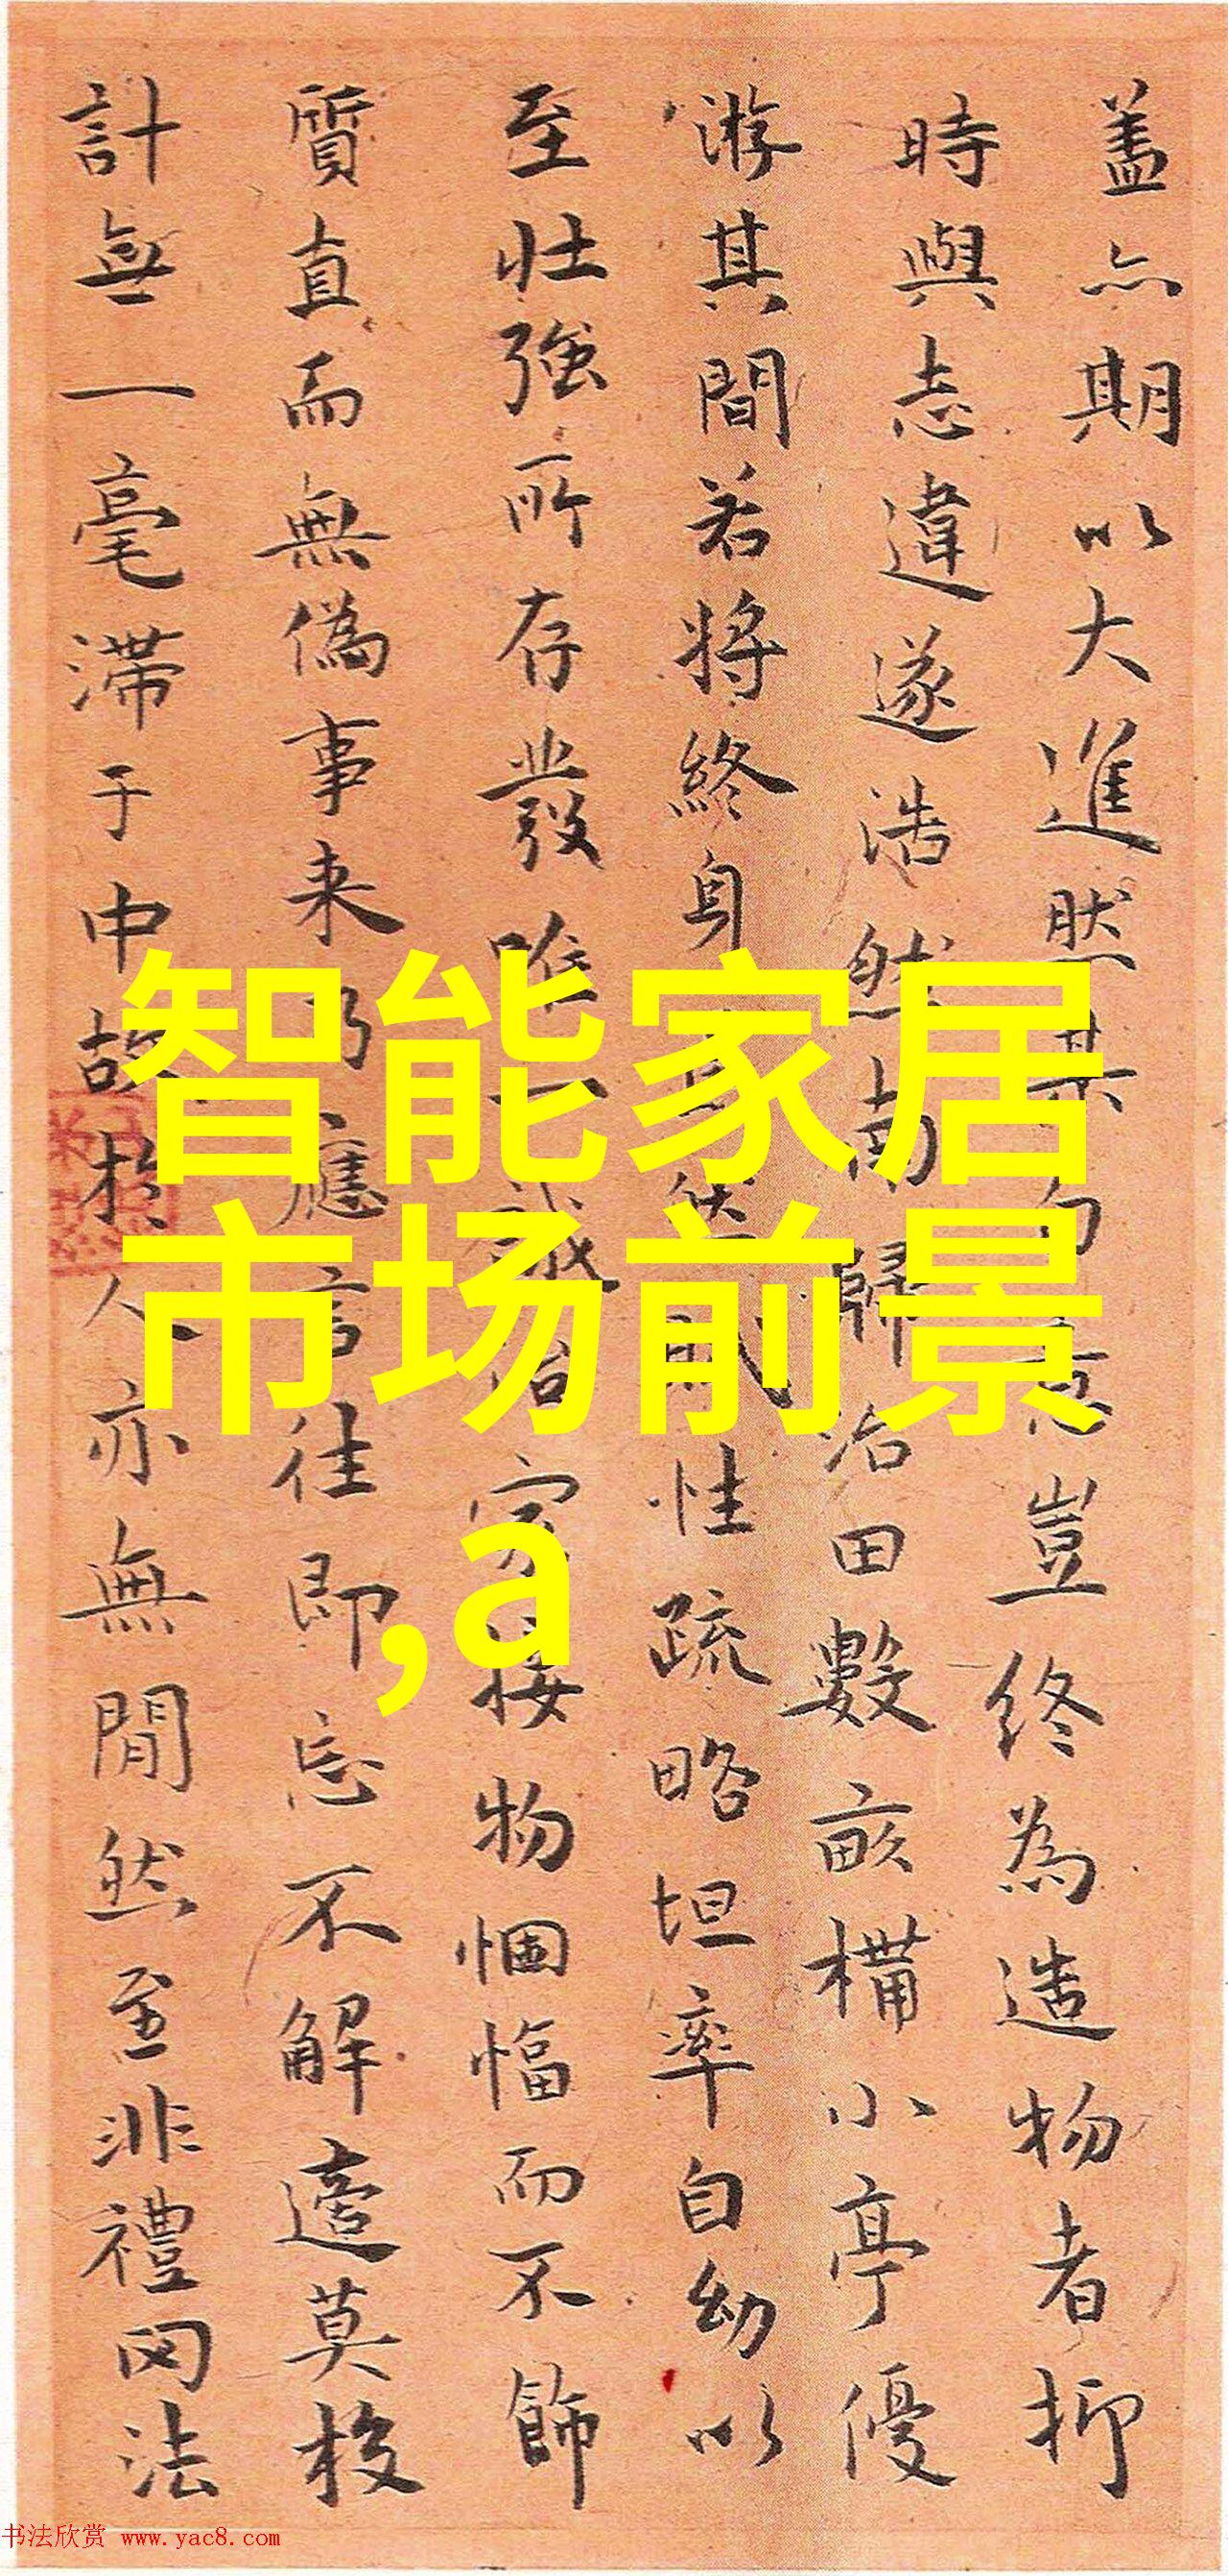 蓋亦期以大進然其
豈終為造物者抑
時與志違遂浩然南歸治田數畝構小亭優
游其間若將終身
性疏略坦率自幼以
至壯強所存發唯一誠
家接物悃愊而不飾
質直而無偽事来乃應言往即忘不解逵莫校
計無一毫滞于中故於人亦無閒然至非禮罔法
智能家居
市场前景
,a
书法欣赏 www.yac8.com